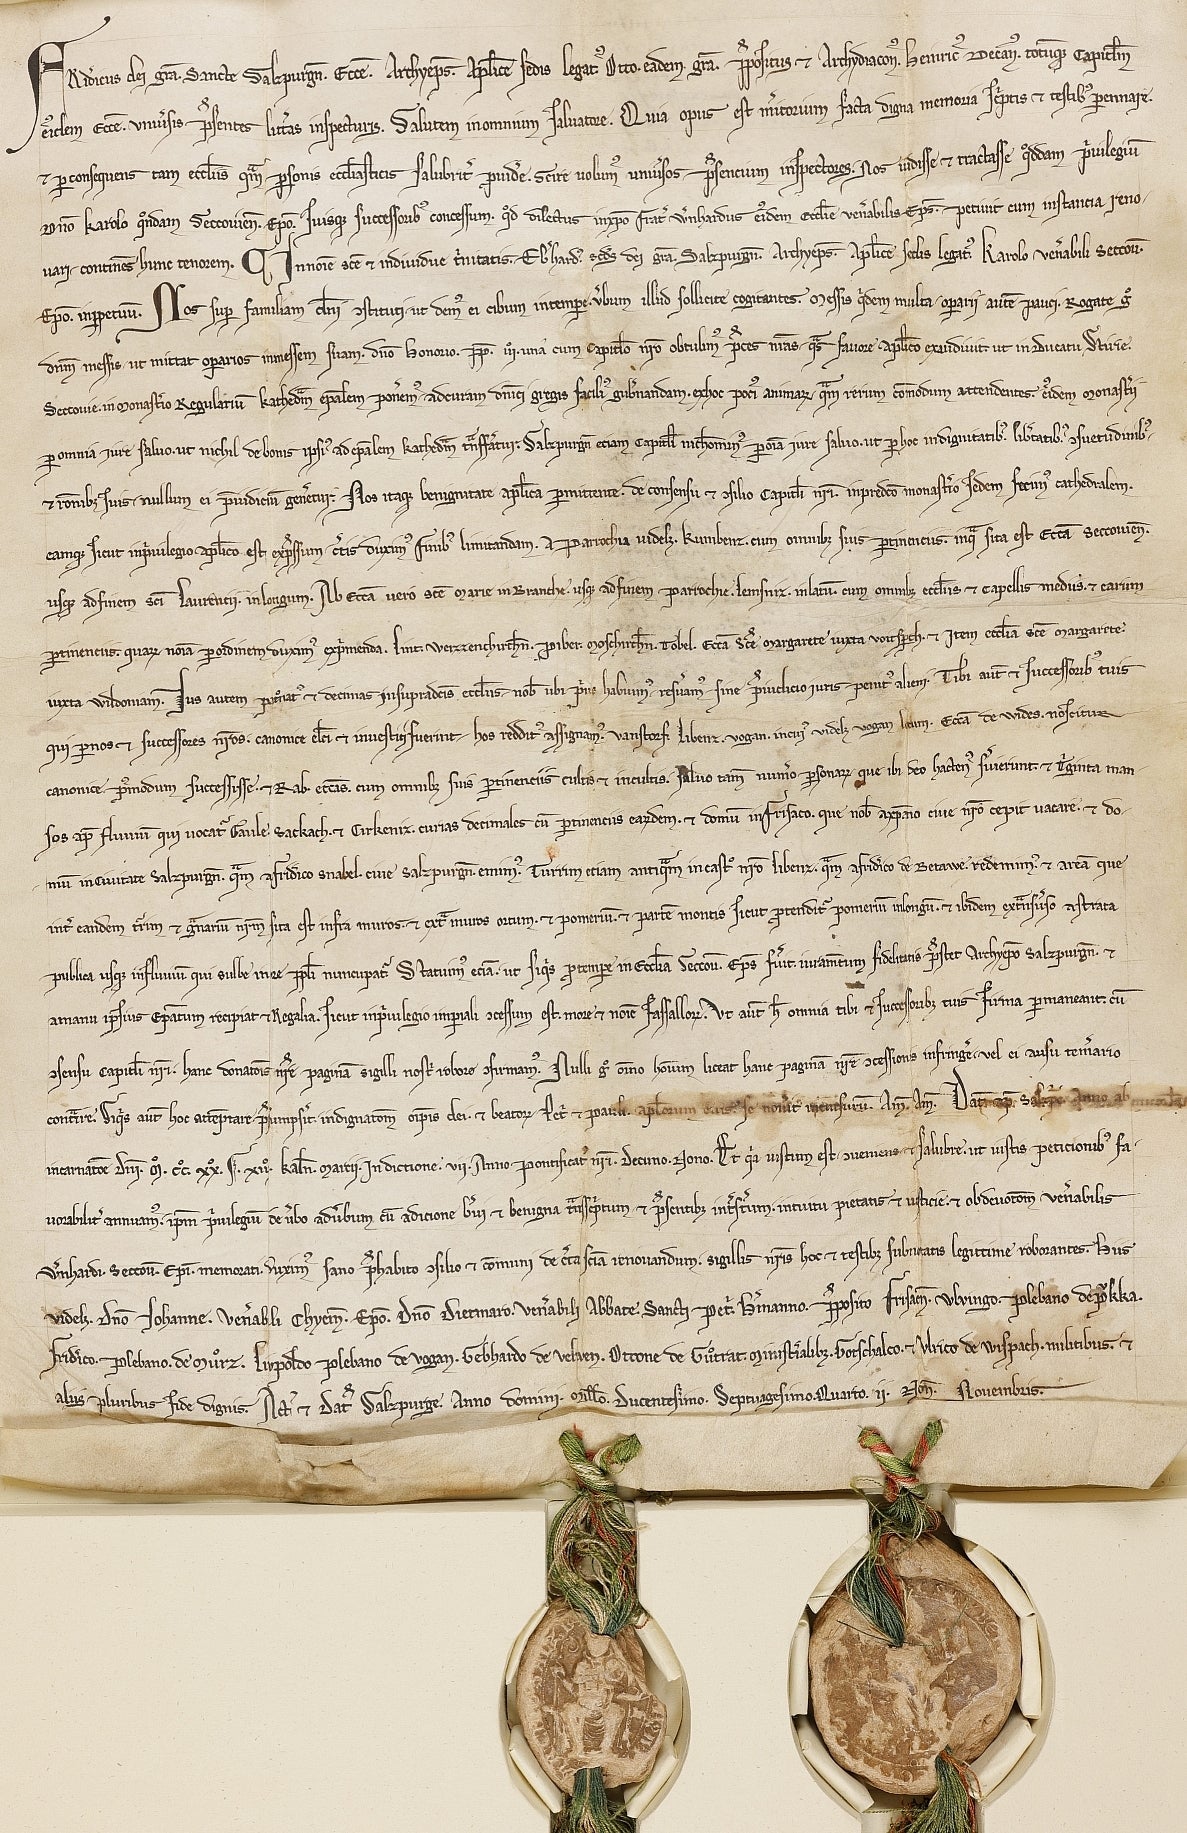 FRidericus dei gra. Sancte Salzpurgn. Ecce. Archyeps. Aplice sedis legat9. Otto eadem gra. Ppositus et Archydiacon9. Heinric9 Decan9. totumq3 Capitlm
eiusdem Ecce. vniusis psentes litteras inspecturis. Salutem in omnium saluatore. Quia opus est mortuorum facta digna memoria scptis et testib9 pennare.
et per consequens tam ecclis qm psonis ecclasticis salubrit puide. Scire uolum9 vniuersos psencium inspectores. Nos uidisse et tractasse qddam puilegiu
Dno Karolo qndam Seccouien. Epo. suisq3 successorib9 concessum. qd dilectus in xpo frat Wnhardus eiusdem Ecclie ven'abilis Eps. petiuit cum instancia reno-
uari. continens hunc tenorem. In noie sce et indiuidue trinitatis. Eb'hard9 scds dei gra. Salzpurgn. Archyeps. Aplice sedis legat9. Karolo ven'abili Seccou.
Epo. inppetuu. Nos sup familiam dni 9stituti. ut dem9 ei cibum in tempe. v'bum illud sollicite cogitantes. Messis qdem multa. oparii aute pauci. Rogate g
dnm messis. ut mittat oparios in messem suam. dno Honorio. pp. iii. una cum Capitlo nro obtulim9 pces nras. qs fauore aplico exaudiuit. ut in Ducatu Stirie.
Seccouie. in Monastio Regulariu kathedm epalem ponem9. ad curam dnici gregis facili9 gub'nandam. ex hoc poci9 animar. qm rerum comodum attendentes. eidem Monastii
p omnia iure saluo. ut nichil de bonis ipsi9 ad epalem kathedm tnsferatur. Salzpurgn eciam Capitli nichomin9 p oia iure saluo. ut p hoc in dignitatib9. lib'tatib9. 9suetudinib9.
et ronib3 suis. nullum ei piudiciu gen'etur. Nos itaq3 benignitate aplica pmittente. de consensu et 9silio Capitli nri. in predco monastio sedem fecim9 cathedralem.
eamq3 sicut in puilegio aplico est expssum. c'tis duxim9 finib9 limitandam. A parrochia uidelz. kumbenz. cum omnib3 suis ptinenciis. in qua sita est Ecca Seccouien.
usq3 ad finem sci Laurencii. in longum. Ab Ecca uero sce Marie in Branche. usq3 ad finem parrochie Lemsniz. in latum. cum omnib3 ecclis et Capellis mediis. et earum
ptinenciis. quar noia p ordinem duxim9 exprimenda. Lint. Werzzenchirchn. Piber. Moschirchn. Tobel. Ecca sce Margarete iuxta voitspch. et Item ecclia sce Margarete
iuxta wildoniam. Ius autem patonat9 et decimas in supradcis ecclis. nob ubi p'us habuim9 reseruam9. sine piudicio iuris penit9 alieni. Tibi aut et successorib9 tuis
qui p nos et successores nros. canonice elci et inuestiti fuerint. hos reddit9 assignam9. Vanstorf. Libenz. Vogan. in cui9 uidelz Vogan locum. Ecca de Wides. noscitur
canonice pmodum successisse. et Rab. eccas. cum omnib3 suis ptinenciis cultis et incultis. saluo tam num'o psonar. que ibi deo hacten9 seruierunt. et Tiginta man-
sos ap fluuiu qui uocat Gamle. Sackach. et Cirkeniz. curias decimales cu ptinenciis earzdem. et domu in Frisaco. que nob a xpano ciue nro cepit uacare. et do-
mu in Ciuitate Salzpurgn. qm a fridico snabel. ciue Salzpurgn. emim9. Turrim eciam antiqm in castro nro Libenz. qm a fridico de Betawe. redemim9. et area que
int' eandem turrim et granariu nrm sita est infra muros. et ext muros ortum. et pomeriu. et parte montis sicut protendit pomeriu in longu. et ibidem ex tnsuso a strata
publica usq3 in fluuiu qui sulbe in re ppli nuncupat. Statuim9 ecia. ut siq's p tempe in Ecclia Seccou. Eps fuerit. iuramtum fidelitatis pstet Archyepo Salzpurgn. et
a manu ipsius Epatum recipiat et Regalia. sicut in puilegio imperiali 9cessum est. more et noie fassallor. Vt aut h omnia tibi et successorib3 tuis firma pmaneant. cu
9sensu Capitli nri. hanc donatois nre paginam sigilli nostri robore 9firmam9. Nulli g omo homi liceat hanc pagina nre 9cessionis infringe. vel ei ausu tem'ario
contraire. Siq's aut hoc attemptare psumpsit. indignatom omnipotentis dei. et beator Petri et pauli aplorum eius. se nouerit incursurum. Am. Am. Dat ap. Salzpg. Anno ab
incarnatoe Dni. M. CC. XX. X. kaln. Martii. Indictione. vii. Anno pontificat9 nri. Decimo. Nono. Et qa iustum est 9ueniens et salubre. ut iustis peticionib9 fa-
uorabilit annuam9. ipm puilegiu de u'bo ad u'bum cu adicione b'ui et benigna tnscptum et psentib3 ins'tum. intuitu pietatis et iusticie. et ob deuotom ven'abilis
Wnhardi. Seccou. Epi. memorati. duxim9 sano phabito 9silio et comuni de c'ta scia renouandum. sigillis nris hoc et testib3 subnotatis legittime roborantes. Huius
uidelz. Dno Iohanne. Ven'abli Chyem. Epo. Dno Dietmaro. Ven'abili Abbate Sancti Petri. H'manno. pposito Frisacen. Vlvingo. plebano de pokka.
Fridico. plebano. de Muorz. Livpoldo plebano de vogan. Gebhardo de velwen. Ottone de Guotrat. Ministialib3. Gotschalco. et Vlrico de Wispach. militibus. et
aliis pluribus fide dignis. Act et Dat Salzpurge. Anno domini. Millo. Ducentesimo. Septuagesimo. Quarto. ii. Non. Nouembris.